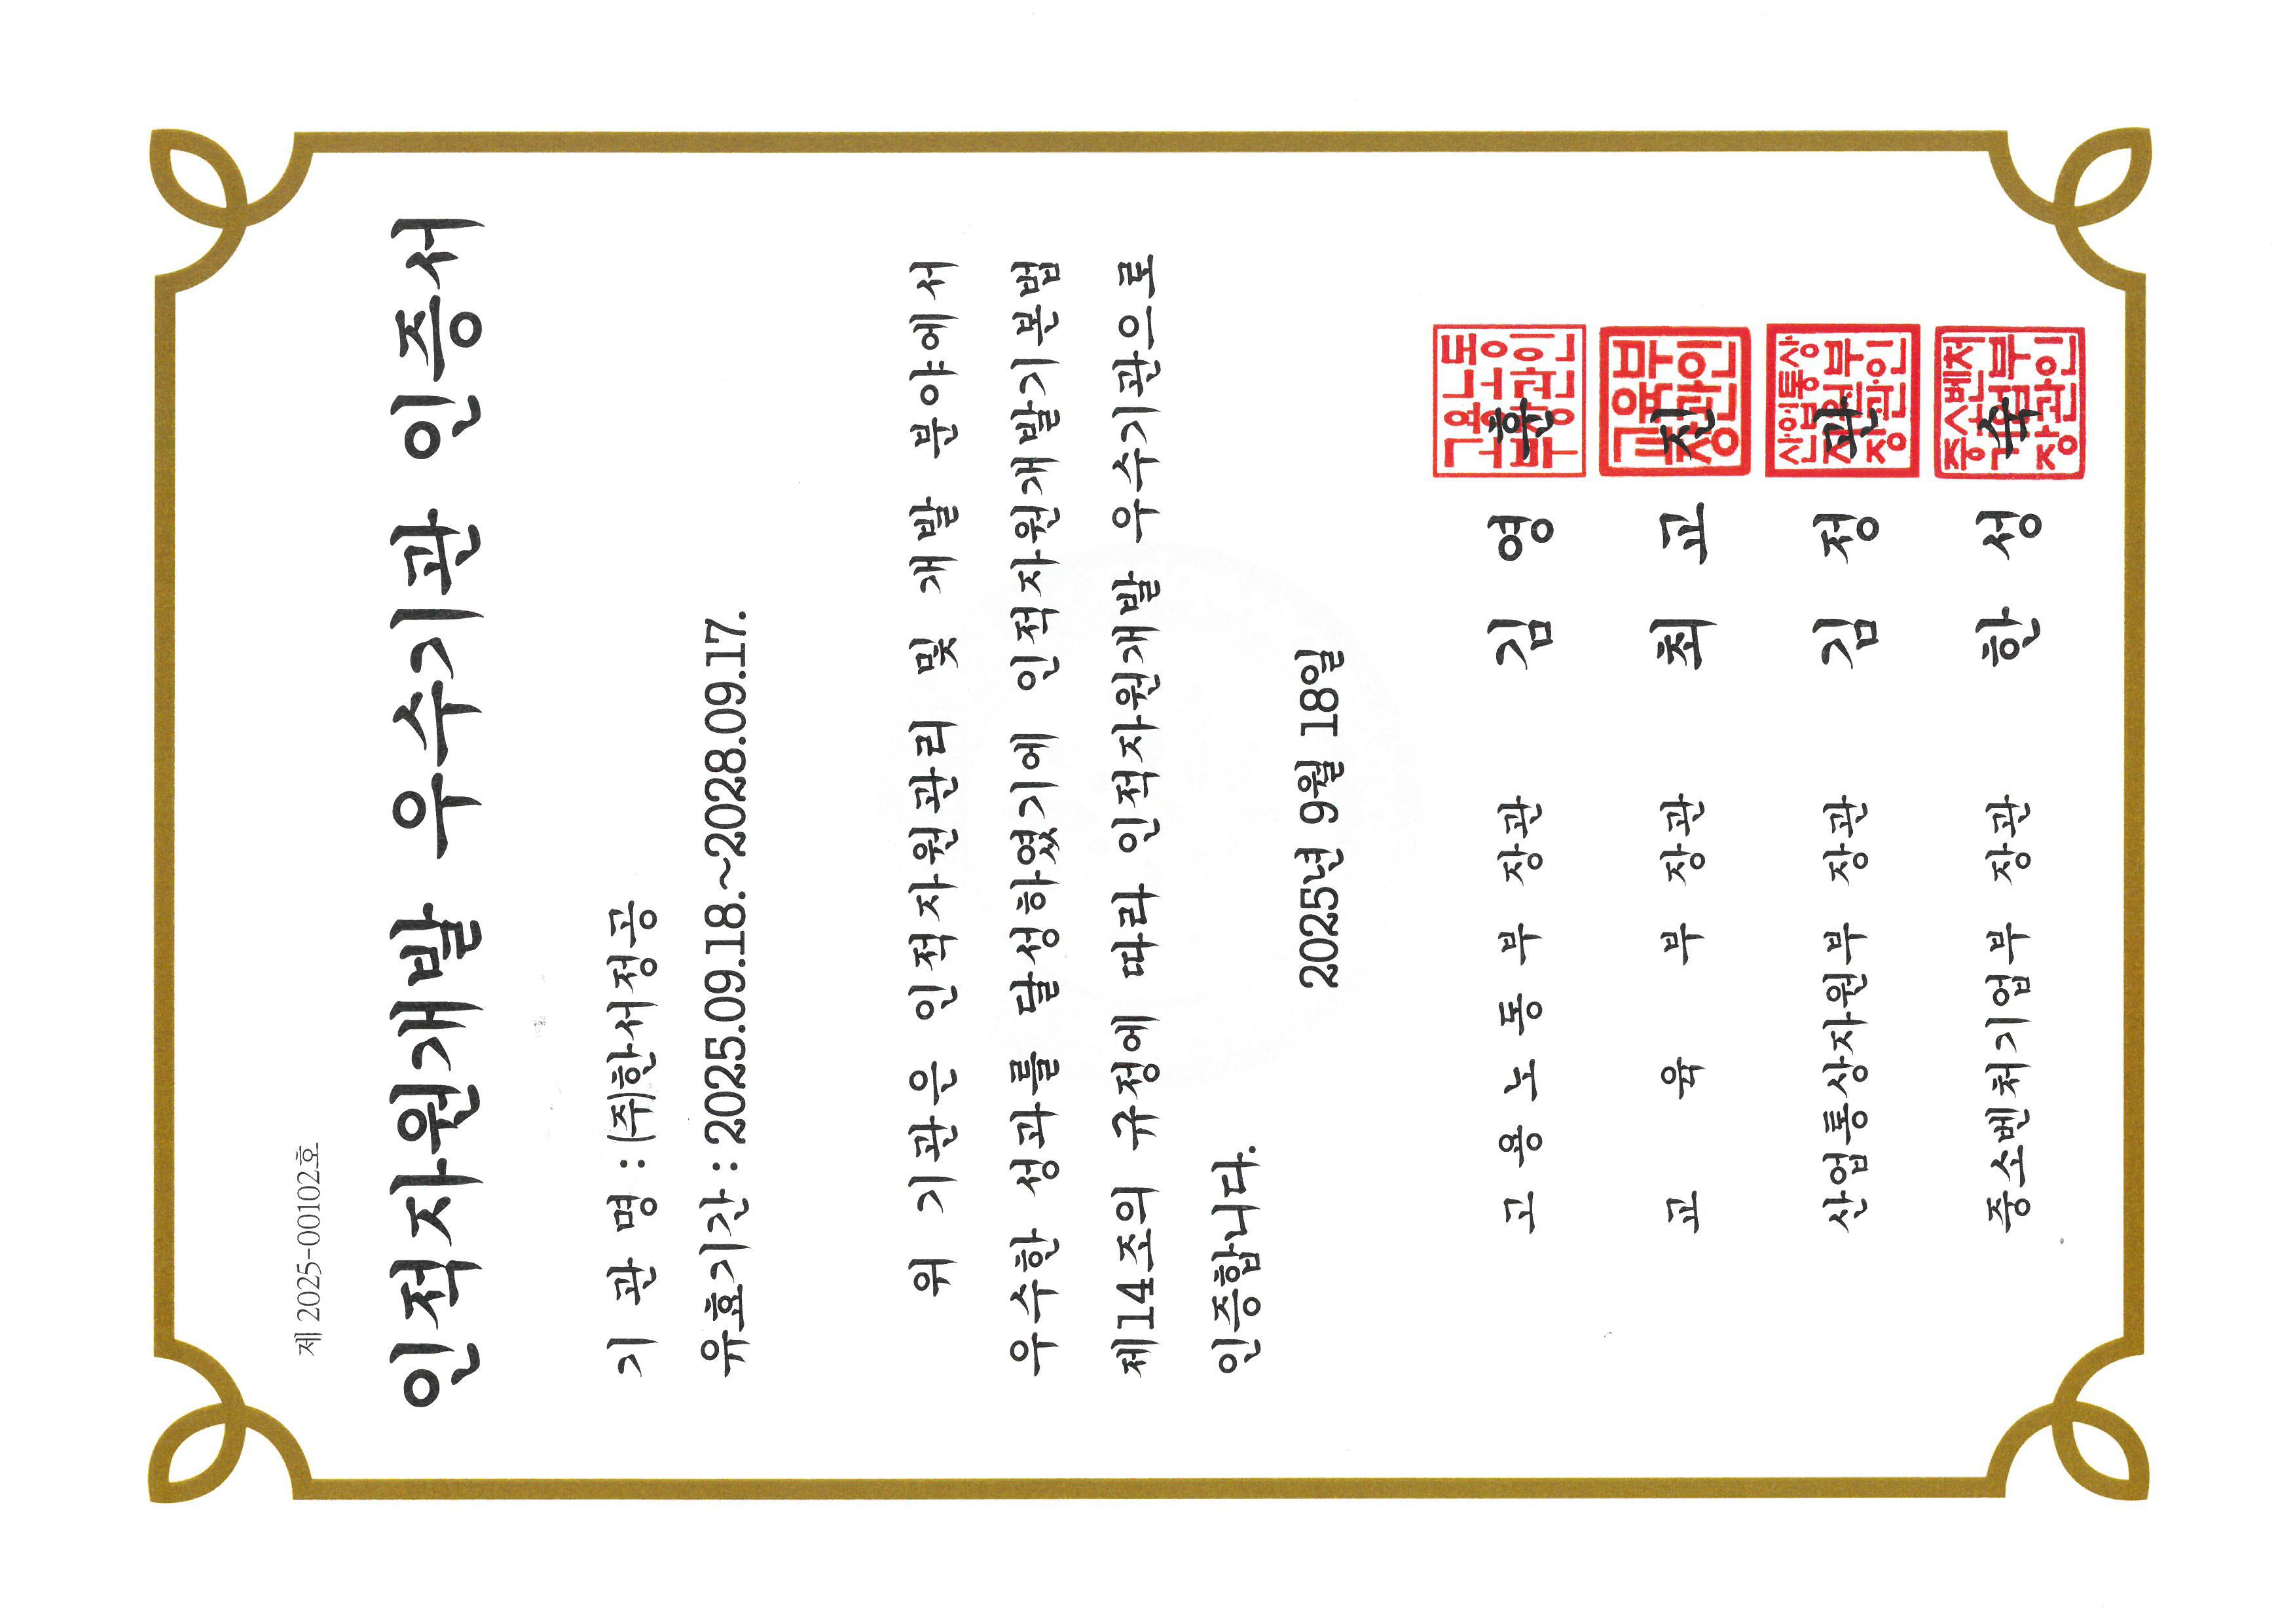 제 2025-00102호
인적자원개발 우수기관 인증서
기 관 명 : (주)한서정공
유효기간 : 2025.09.18.~2028.09.17.
위 기관은 인적자원관리 및 개발 분야에서
우수한 성과를 달성하였기에 인적자원개발기본법
제14조의 규정에 따라 인적자원개발 우수기관으로
인증합니다.
2025년 9월 18일
고용노동부 장관 김영훈
고용노동
부장관인
교육부 장관 최교진
교육부
장관인
산업통상자원부 장관 김정관
산업통상
자원부
장관인
중소벤처기업부 장관 한성숙
중소벤처
기업부
장관인